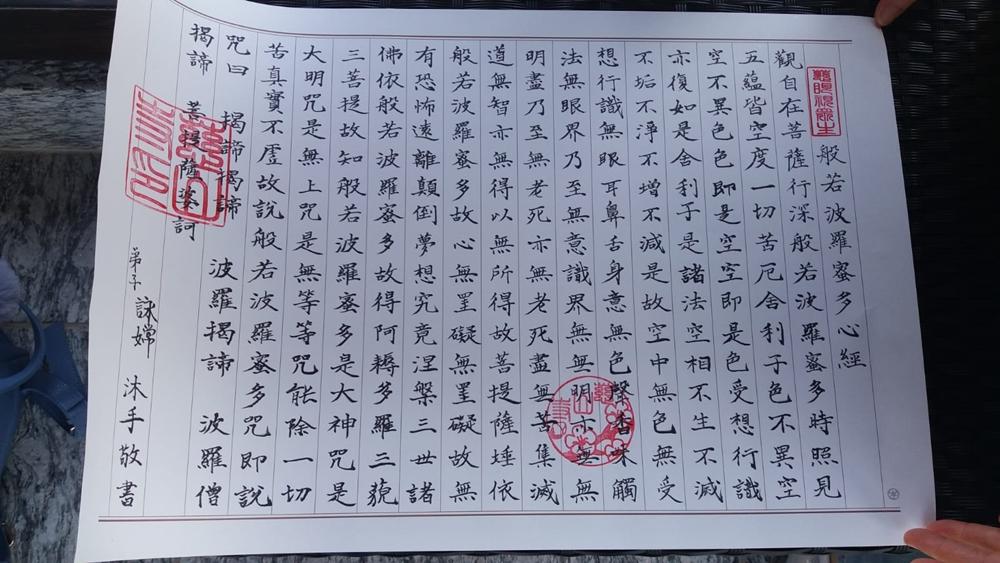 慈眼視眾生
般若波羅蜜多心經
觀自在菩薩行深般若波羅蜜多時照見
五蘊皆空度一切苦厄舍利子色不異空
空不異色色即是空空即是色受想行識
亦復如是舍利子是諸法空相不生不滅
不垢不淨不增不減是故空中無色無受
想行識無眼耳鼻舌身意無色聲香味觸
法無眼界乃至無意識界無無明亦無無
明盡乃至無老死亦無老死盡無苦集滅
道無智亦無得以無所得故菩提薩埵依
般若波羅蜜多故心無罣礙無罣礙故無
有恐怖遠離顛倒夢想究竟涅槃三世諸
佛依般若波羅蜜多故得阿耨多羅三藐
三菩提故知般若波羅蜜多是大神咒是
大明咒是無上咒是無等等咒能除一切
苦真實不虛故說般若波羅蜜多咒即說
咒曰 揭諦揭諦 波羅揭諦 波羅僧
揭諦 菩提薩婆訶
弟子 詠嫦 沐手敬書